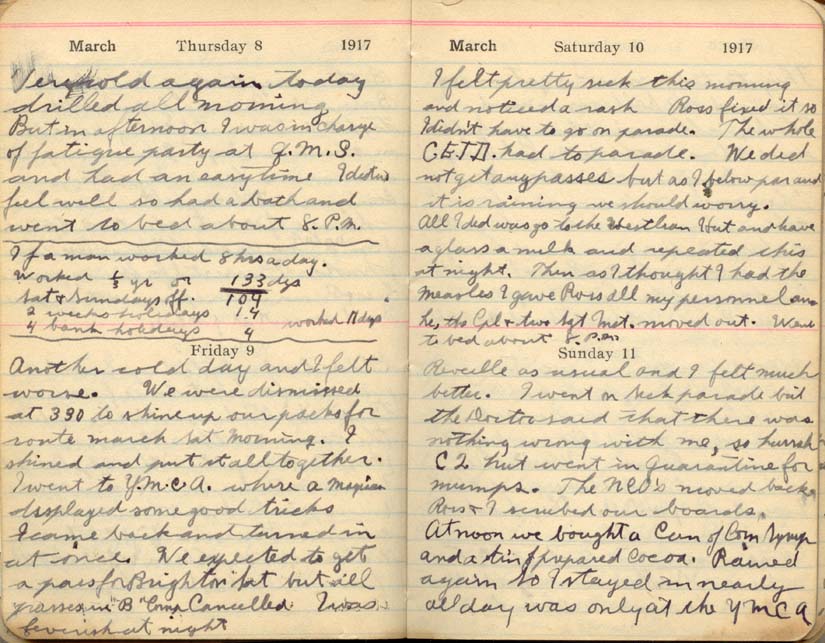 March Thursday 8 1917
Very cold again today
drilled all morning
But in afternoon I was in charge
of fatigue party at Q.M.S.
and had an easy time I didn't
feel well so had a bath and
went to bed about 8. P.M.
If a man worked 8 hrs a day.
Worked 1/3 yr or 133 dys
Sat & Sundays off. 104
2 weeks holidays 14
4 bank holidays 4 worked 11 days
Friday 9
Another cold day and I felt
worse. We were dismissed
at 330 to shine up our packs for
route march Sat morning. I
shined and put it all together.
I went to Y.M.C.A. where a Magician
displayed some good tricks
I came back and turned in
at once. We expected to get
a pass for Brighton Sat but all
passes in "B" Comp Cancelled. I was
feverish at night
March Saturday 10 1917
I felt pretty sick this morning
and noticed a rash Ross fixed it so
I didn't have to go on parade. The whole
C.E.T.D. had to parade. We did
not get any passes but as I below par and
it is raining we should worry.
All I did was go to the Weslean Hut and have
a glass a milk and repeated this
at night. Then as I thought I had the
Measles I gave Ross all my personnel and
he, the Cpl & two Sgt Inst. moved out. Went
to bed about 8. P.M.
Sunday 11
Reveille as usual and I felt much
better. I went on sick parade but
the Doctor said that there was
nothing wrong with me, so hurrah
C 2 hut went in Quarantine for
mumps. The NCO's moved back.
Ross & I scrubed our boards.
At noon we bought a Can of Corn Syrup
and a tin of prepared Cocoa. Rained
again so I stayed in nearly
all day was only at the YMCA